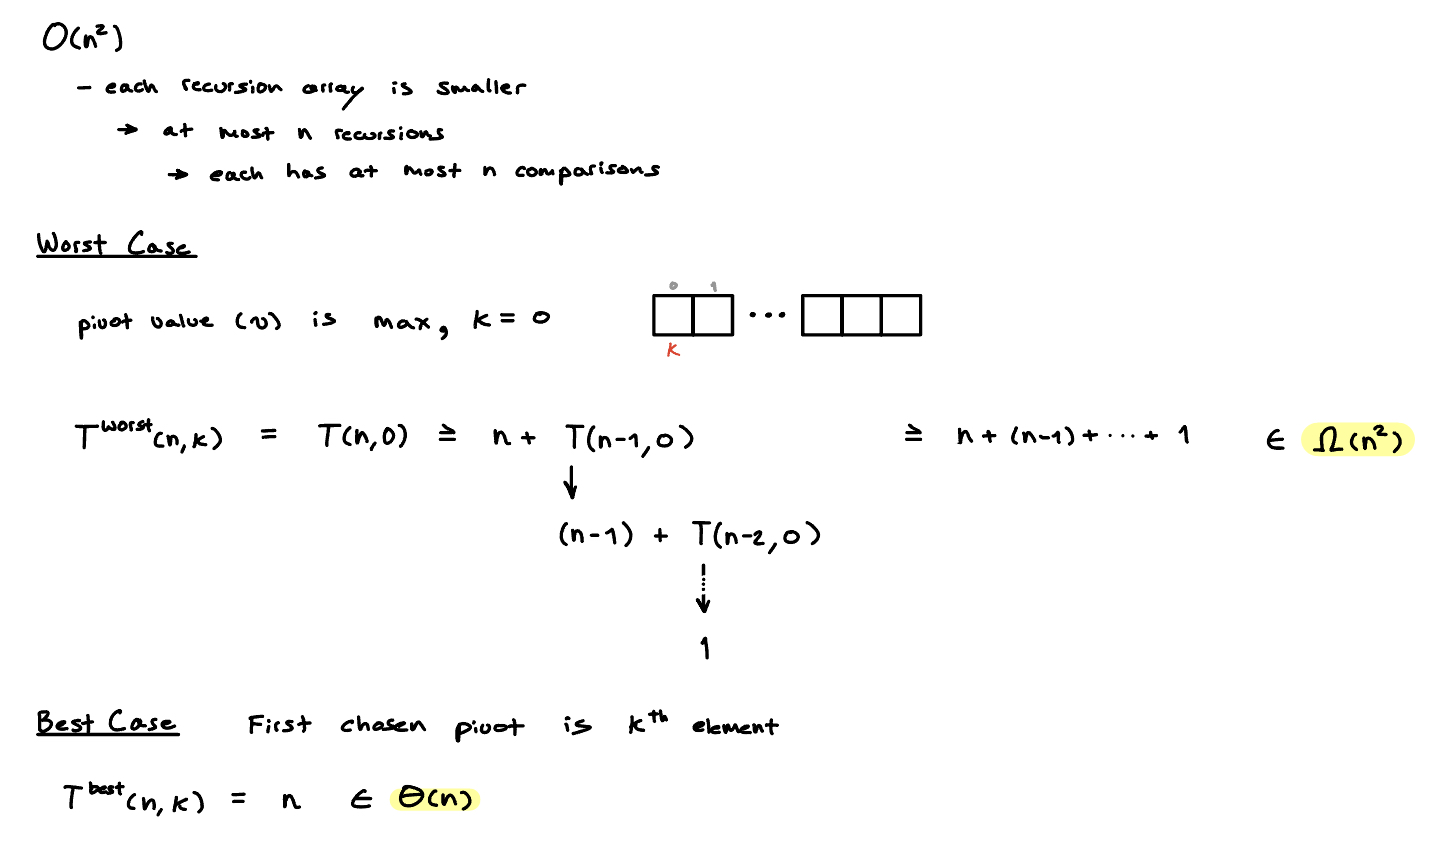 O(n²)
- each recursion array is smaller
→ at most n recursions
→ each has at most n comparisons
Worst Case
pivot value (v) is max, k = 0
0 1
...
K
T^worst(n,k) = T(n,0) ≥ n + T(n-1,0) ≥ n + (n-1) + ... + 1 ∈ Ω(n²)
↓
(n-1) + T(n-2,0)
↓
1
Best Case First chosen pivot is k^th element
T^best(n,k) = n ∈ Θ(n)